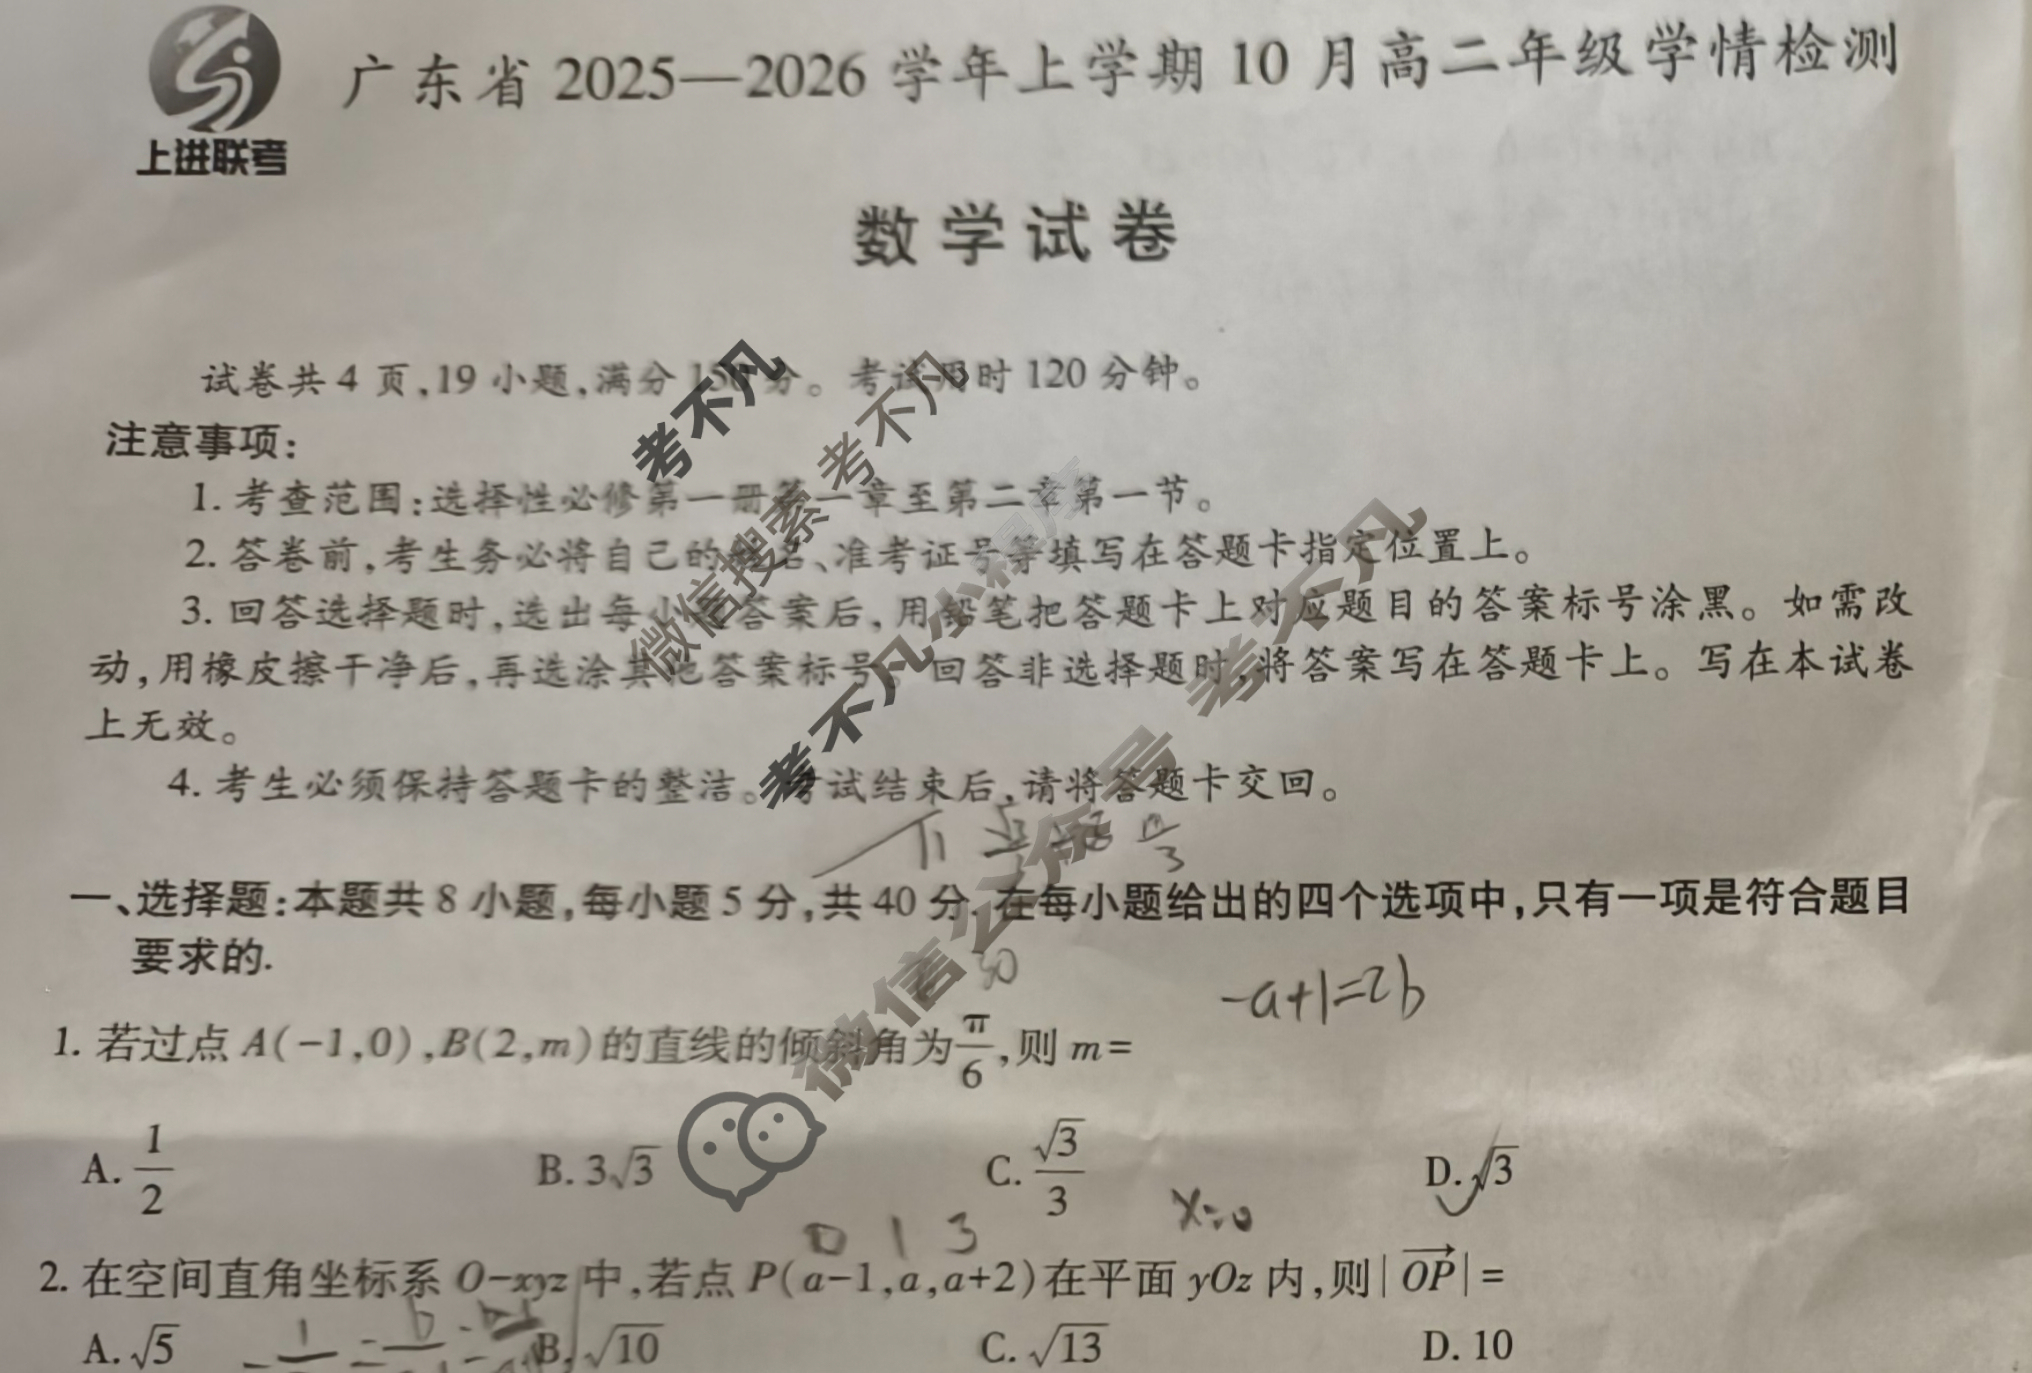 上进联考
广东省 2025—2026 学年上学期 10 月高二年级学情检测
数学试卷
试卷共 4 页,19 小题,满分 150 分。考试用时 120 分钟。
注意事项:
1. 考查范围:选择性必修第一册第一章至第二章第一节。
2. 答卷前,考生务必将自己的姓名、准考证号等填写在答题卡指定位置上。
3. 回答选择题时,选出每小题答案后,用铅笔把答题卡上对应题目的答案标号涂黑。如需改
动,用橡皮擦干净后,再选涂其他答案标号。回答非选择题时,将答案写在答题卡上。写在本试卷
上无效。
4. 考生必须保持答题卡的整洁。考试结束后,请将答题卡交回。
一、选择题:本题共 8 小题,每小题 5 分,共 40 分. 在每小题给出的四个选项中,只有一项是符合题目
要求的.
30
-a+1=2b
1. 若过点 A(-1,0),B(2,m)的直线的倾斜角为 π/6,则 m=
A. 1/2 B. 3√3 C. √3/3 D. √3
0 1 3 x=0
2. 在空间直角坐标系 O-xyz 中,若点 P(a-1,a,a+2)在平面 yOz 内,则|OP|=
A. √5 B. √10 C. √13 D. 10
考不凡
微信搜索 考不凡
考不凡小程序
微信公众号 考不凡